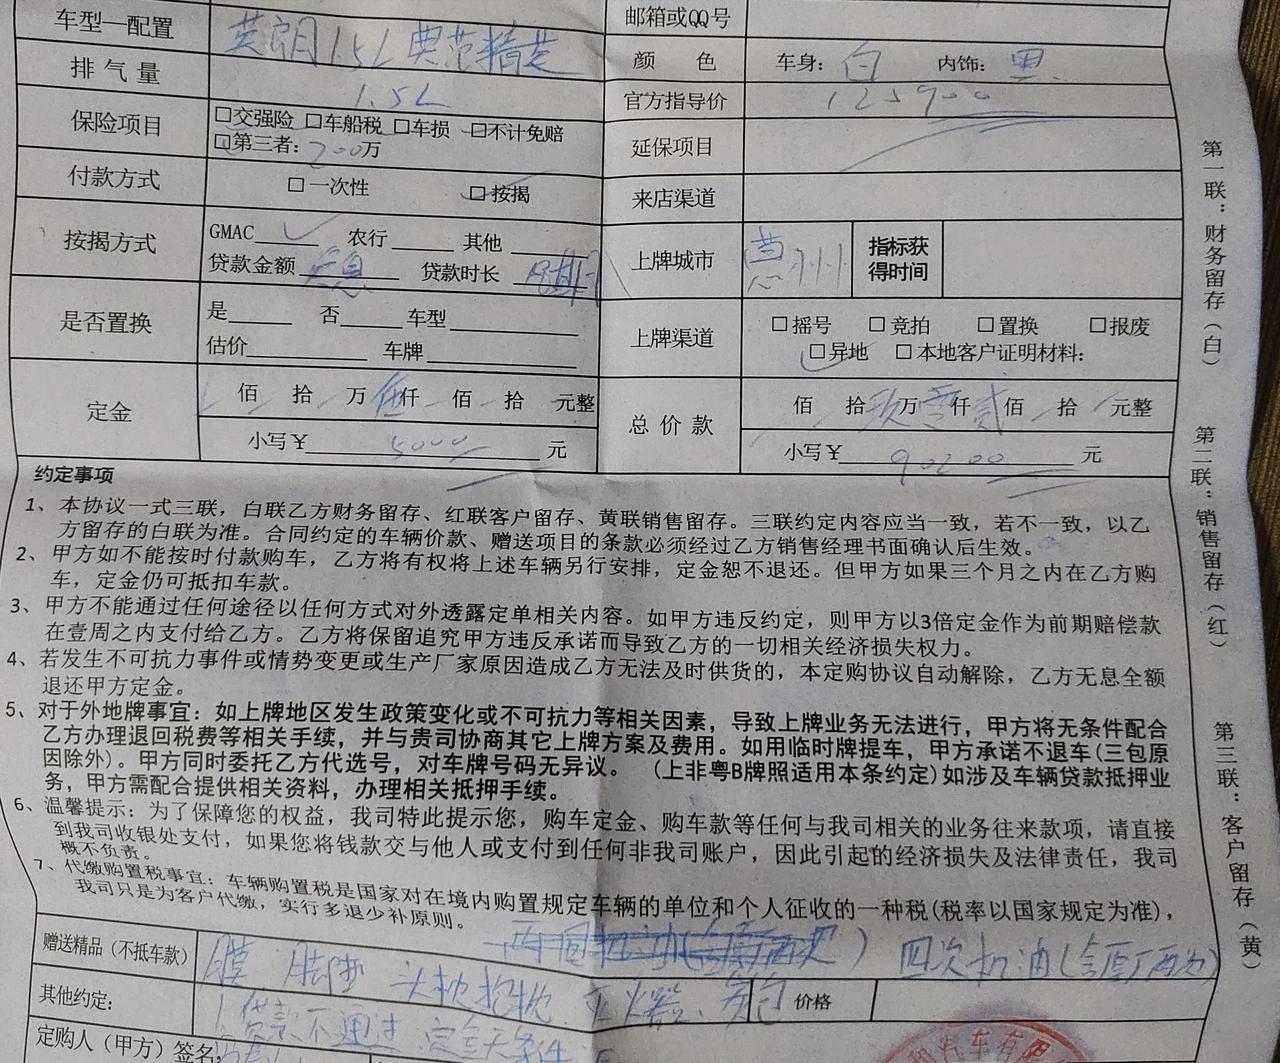 车型—配置 英朗1.5L 典范精英 邮箱或QQ号
排气量 1.5L 颜 色 车身: 白 内饰: 黑
保险项目 □交强险 □车船税 □车损 □不计免赔 官方指导价 125900
□第三者: 200万 延保项目
付款方式 □一次性 □按揭 来店渠道
按揭方式 GMAC 农行 其他 上牌城市 惠州 指标获得时间
贷款金额 贷款时长
是否置换 是 否 车型 上牌渠道 □摇号 □竞拍 □置换 □报废
估价 车牌 □异地 □本地客户证明材料:
定金 佰 拾 万 伍仟 佰 拾 元整 总价款 佰 拾 玖万 零仟 贰佰 拾 元整
小写¥ 5000 元 小写¥ 90200 元
约定事项
1、本协议一式三联，白联乙方财务留存、红联客户留存、黄联销售留存。三联约定内容应当一致，若不一致，以乙
方留存的白联为准。合同约定的车辆价款、赠送项目的条款必须经过乙方销售经理书面确认后生效。
2、甲方如不能按时付款购车，乙方将有权将上述车辆另行安排，定金恕不退还。但甲方如果三个月之内在乙方购
车，定金仍可抵扣车款。
3、甲方不能通过任何途径以任何方式对外透露定单相关内容。如甲方违反约定，则甲方以3倍定金作为前期赔偿款
在壹周之内支付给乙方。乙方将保留追究甲方违反承诺而导致乙方的一切相关经济损失权力。
4、若发生不可抗力事件或情势变更或生产厂家原因造成乙方无法及时供货的，本定购协议自动解除，乙方无息全额
退还甲方定金。
5、对于外地牌事宜：如上牌地区发生政策变化或不可抗力等相关因素，导致上牌业务无法进行，甲方将无条件配合
乙方办理退回税费等相关手续，并与贵司协商其它上牌方案及费用。如用临时牌提车，甲方承诺不退车(三包原
因除外)。甲方同时委托乙方代选号，对车牌号码无异议。 (上非粤B牌照适用本条约定)如涉及车辆贷款抵押业
务，甲方需配合提供相关资料，办理相关抵押手续。
6、温馨提示：为了保障您的权益，我司特此提示您，购车定金、购车款等任何与我司相关的业务往来款项，请直接
到我司收银处支付，如果您将钱款交与他人或支付到任何非我司账户，因此引起的经济损失及法律责任，我司
概不负责。
7、代缴购置税事宜：车辆购置税是国家对在境内购置规定车辆的单位和个人征收的一种税(税率以国家规定为准)，
我司只是为客户代缴，实行多退少补原则。
四次机油(含原厂两次)
赠送精品（不抵车款） 膜 脚垫 头枕抱枕 灭火器
其他约定: 1 贷款不通过 定金无条件 价格
定购人（甲方）签名:
汽车有限
第一联：财务留存（白）
第二联：销售留存（红）
第三联：客户留存（黄）